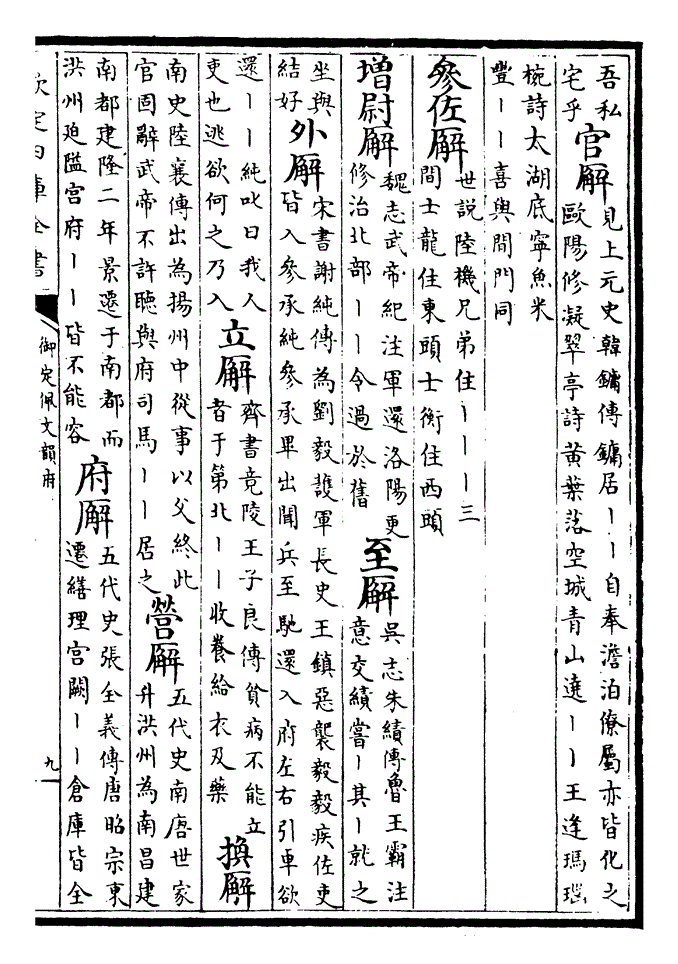 吾私
宅乎
官廨
見上元史韓鏞傳鏞居丨丨自奉澹泊僚屬亦皆化之
歐陽修凝翠亭詩黃葉落空城青山遶丨丨王逢瑪瑙
椀詩太湖底寧魚米
豐丨丨喜與間門同
參佐廨
世說陸機兄弟住丨丨丨三
間士龍住東頭士衡住西頭
增尉廨
魏志武帝紀注軍還洛陽更
修治北部丨丨令過於舊
至廨
吳志朱績傳魯王霸注
意交績嘗丨其丨就之
坐與
結好
外廨
宋書謝純傳為劉毅護軍長史王鎮惡襲毅毅疾佐吏
皆入參承純參承畢出聞兵至馳還入府左右引車欲
還丨丨純叱曰我人
吏也逃欲何之乃入
立廨
齊書竟陵王子良傳貧病不能立
者于第北丨丨收養給衣及藥
換廨
南史陸襄傳出為揚州中從事以父終此
官固辭武帝不許聽與府司馬丨丨居之
營廨
五代史南唐世家
升洪州為南昌建
南都建隆二年景遷于南都而
洪州迫隘宮府丨丨皆不能容
府廨
五代史張全義傳唐昭宗東
遷繕理宮闕丨丨倉庫皆全
欽定四庫全書
御定佩文韻府
九